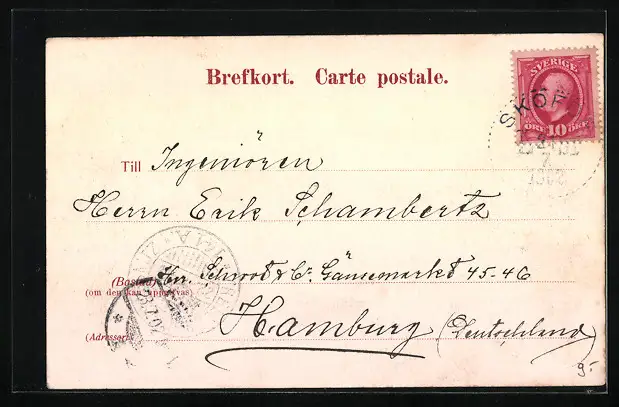 Brefkort. Carte postale.
SVERIGE
ÖRE 10 ÖRE
SKÖF
Till Ingeniören
Herrn Erik Schambertz
(Bostad) Hrr. Schrood & Co. Gänsemarkt 45-46
(om den kan uppgifvas)
Hamburg (Deutschland)
(Adressort)
9.-